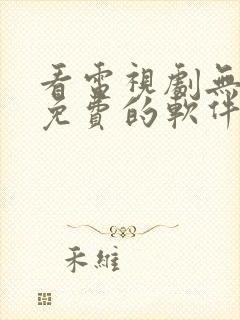 看電視劇無
免費的軟件
禾維